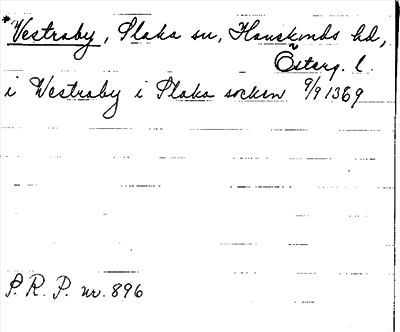 *Vestraby, Slaka sn, Hanekinds hd,
Österg. l.
i Westraby i Slaka socken 9/9 1369
P. R. P. nr. 896